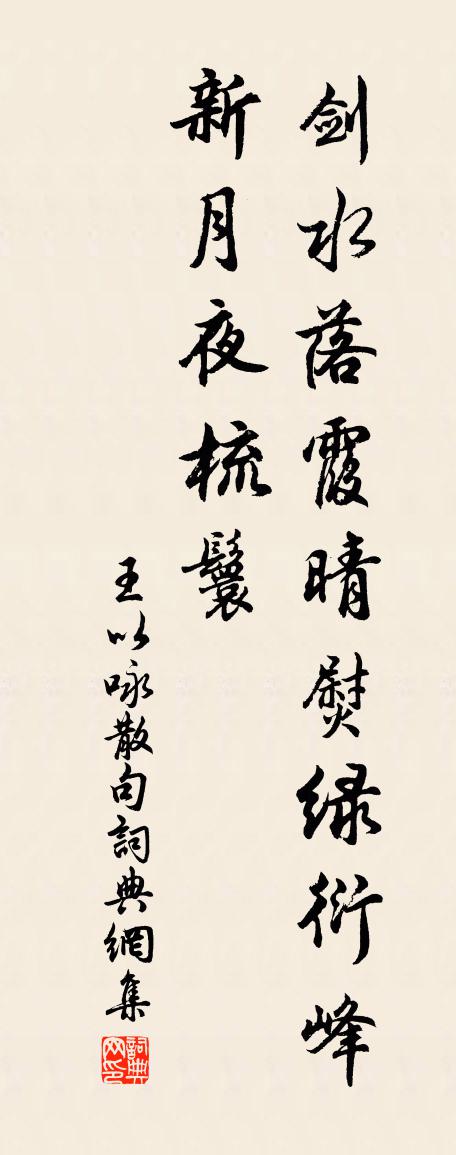 剑水落霞晴熨绿衍峰
新月夜梳鬟
王以咏散句詞典網集
詞典网印